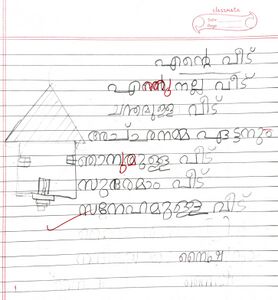 classmate
Date
Page
എന്റെ വീട്
എന്തു നല്ല വീട്
ചന്തമുള്ള വീട്
അച്ചനമ്മ ഏട്ടനും
ഞാനുമുള്ള വീട്
സുന്ദരമാം വീട്
സനേഹമുള്ള വീട്